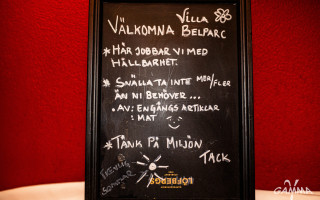 VÄLKOMNA VILLA BELPARC
* HÄR JOBBAR VI MED
HÅLLBARHET.
* SNÄLLA TA INTE MER/FLER
ÄN NI BEHÖVER...
• AV: ENGÅNGS ARTIKLAR
: MAT
* TÄNK PÅ MILJÖN
TACK
TREVLIG
SOMMAR
LÖFBERGS
GAMMA